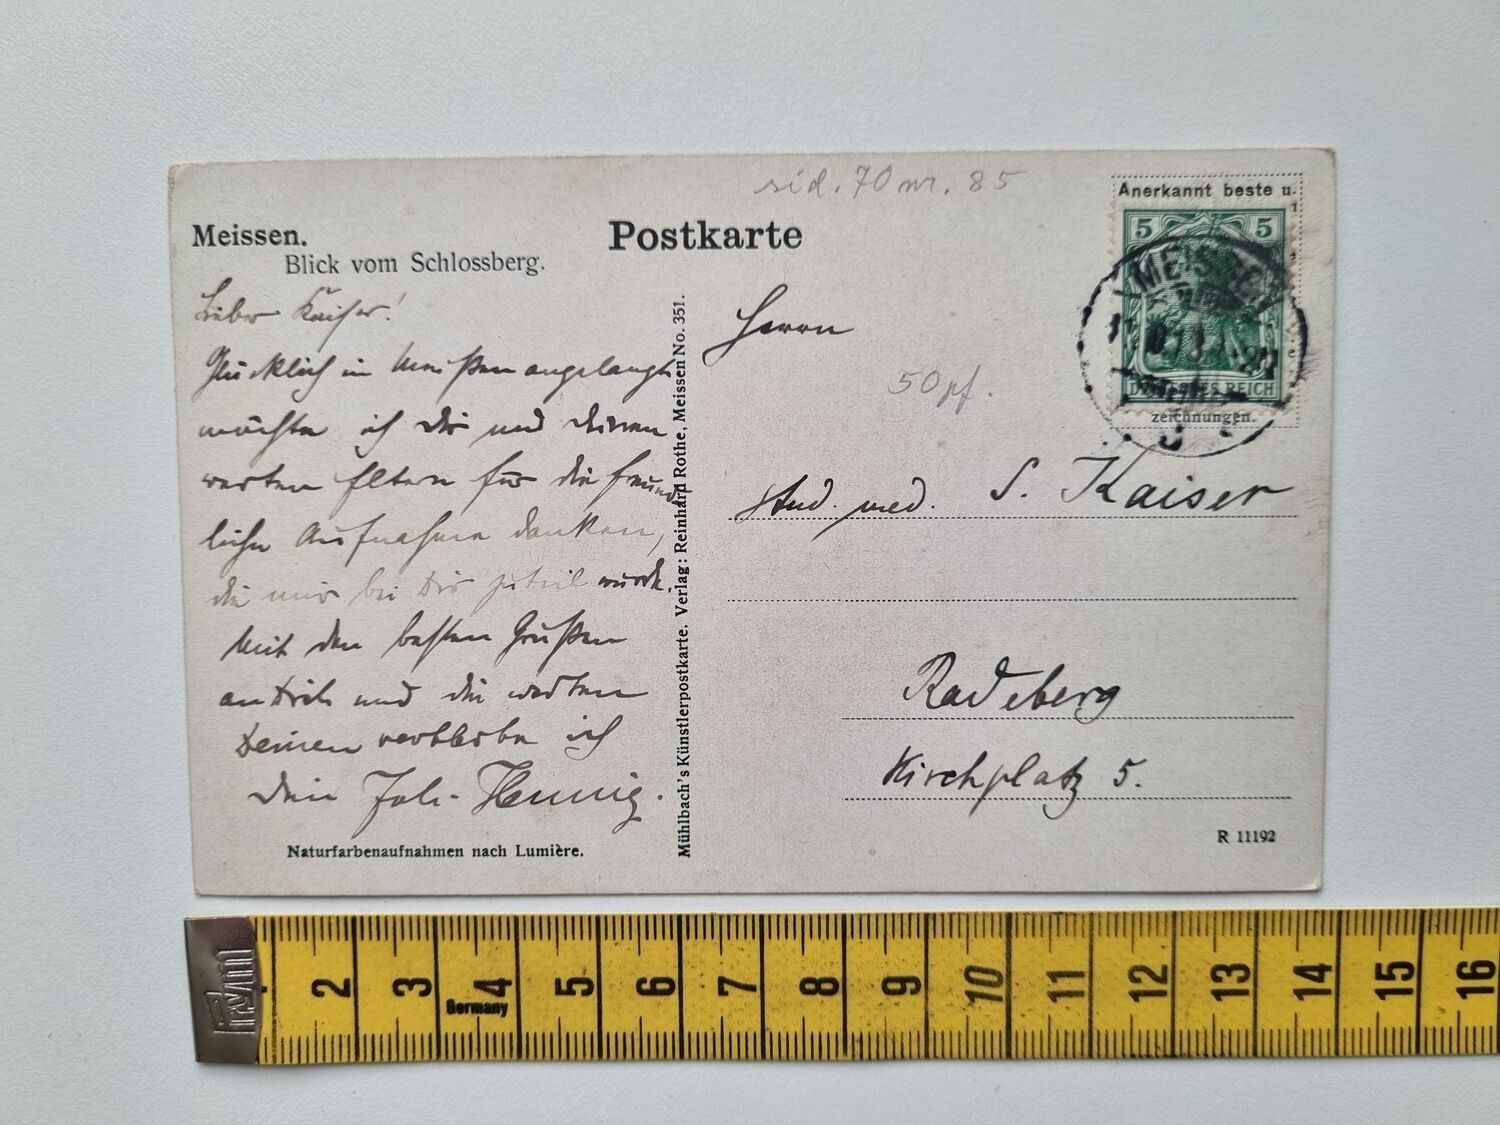 sid. 70 nr. 85
Anerkannt beste u.
Meissen.
Postkarte
Blick vom Schlossberg.
5 5
MEISSEN
DEUTSCHES REICH
zeichnungen.
Lieber Kaiser!
Glücklich in Meißen angelangt
möchte ich Dir und Deinen
werten Eltern für die freund-
liche Aufnahme danken,
die mir bei Dir zuteil wurde.
Mit den besten Grüßen
an Dich und die werten
Deinen verbleibe ich
Dein Joh. Hennig.
Naturfarbenaufnahmen nach Lumière.
Mühlbach's Künstlerpostkarte. Verlag: Reinhard Rothe, Meissen No. 351.
Herrn
50 pf.
stud. med. S. Kaiser
Radeberg
Kirchplatz 5.
R 11192
2 3 4 5 6 7 8 9 10 11 12 13 14 15 16
Germany